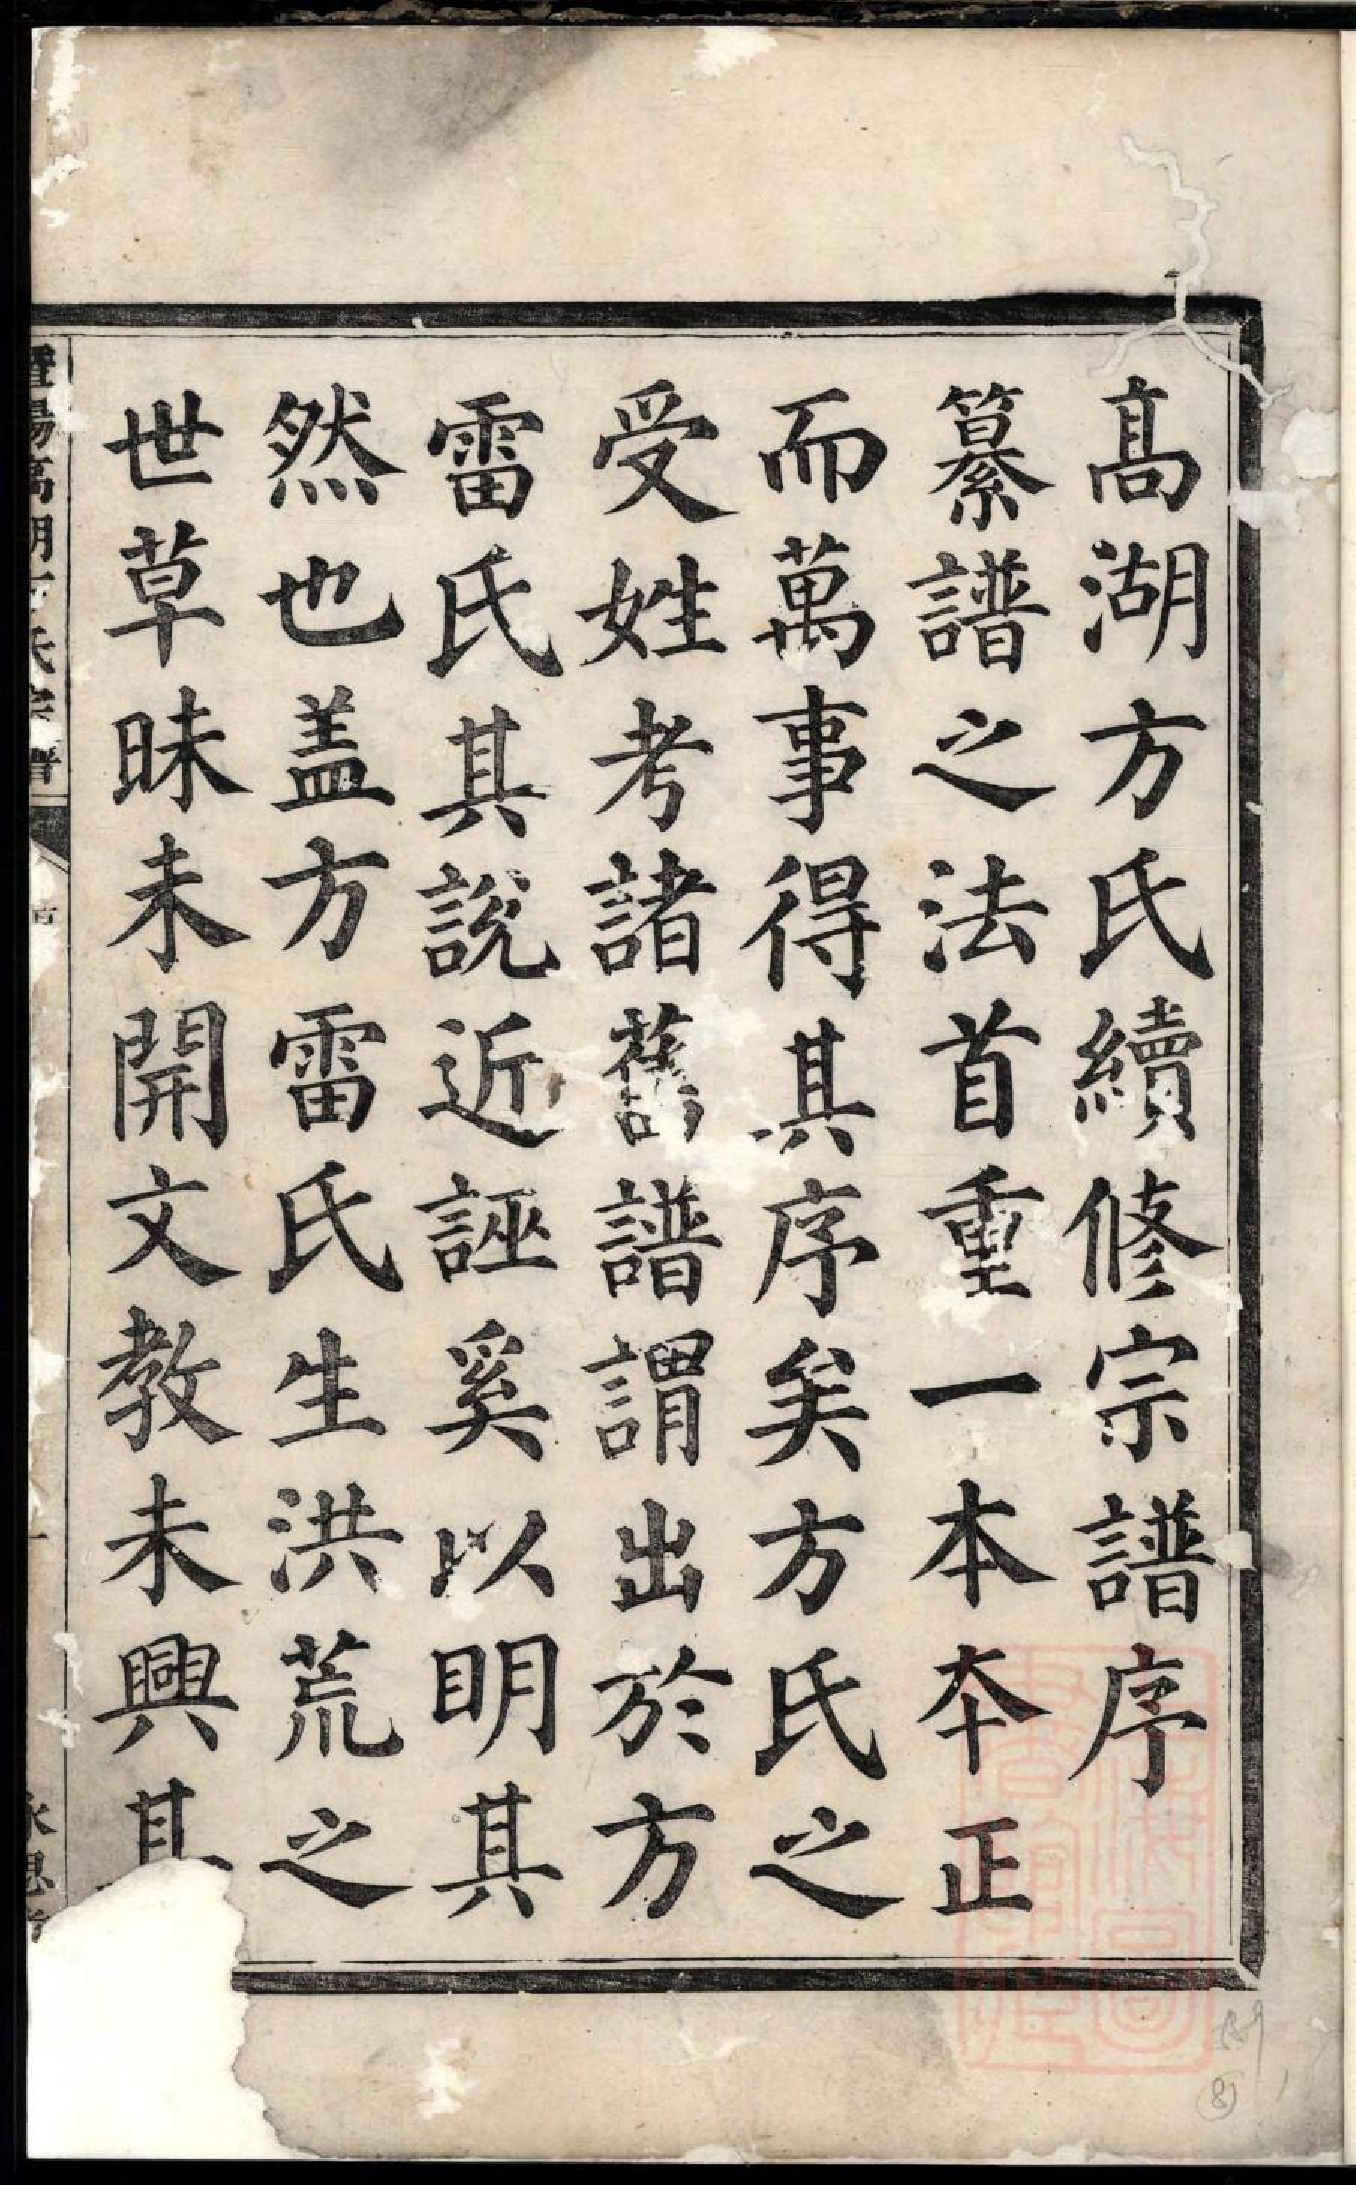 高湖方氏續修宗譜序
纂譜之法首重一本夲正
而萬事得其序矣方氏之
受姓考諸舊譜謂出於方
雷氏其說近誣奚以明其
然也盖方雷氏生洪荒之
世草昧未開文教未興其
暨陽高湖方氏宗譜
永思